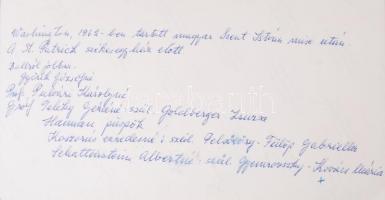 Washington, 1962-ben tartott magyar Szent István mise után.
A St. Patrick székesegyház előtt
balról jobbra.
József
Prof. Károlyné
Gróf Teleky Géráné szül. Goldberger Zsuzsa
Hannan püspök
Koszorús ezredesné: szül. Felsőőry-Fülöp Gabriella
Schattenstein Albertné: szül. Gyurovszky-Kovács Mária
+